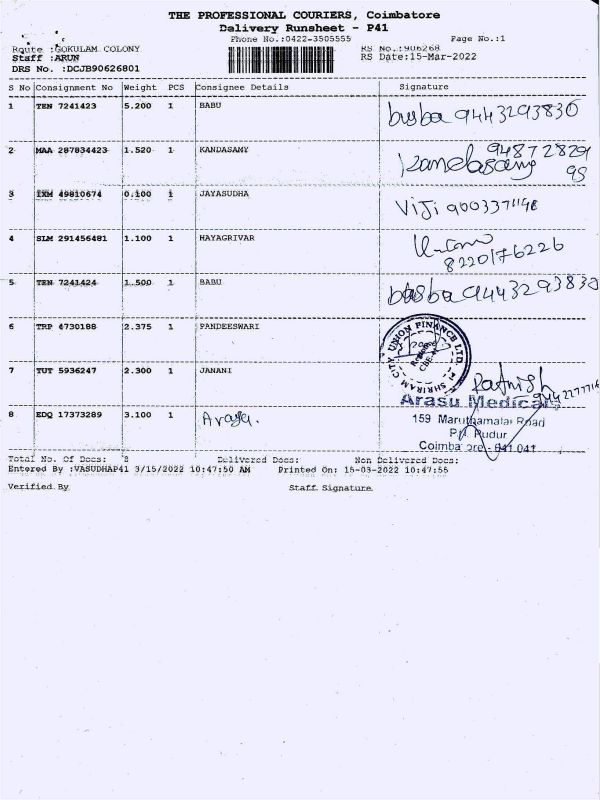 THE PROFESSIONAL COURIERS, Coimbatore
Delivery Runsheet - P41
Phone No.:0422-3505555 Page No.:1
Route :GOKULAM COLONY RS No.:906268
Staff :ARUN RS Date:15-Mar-2022
DRS No. :DCJB90626801
S No Consignment No Weight PCS Consignee Details Signature
1 TEN 7241423 5.200 1 BABU 9443293830
2 MAA 287834423 1.520 1 KANDASAMY Kandasamy 948728291
95
3 IXM 49810674 0.100 1 JAYASUDHA Viji
4 SLM 291456481 1.100 1 HAYAGRIVAR
8220176226
5 TEN 7241424 1.500 1 BABU 9443293830
6 TRP 4730188 2.375 1 PANDEESWARI SHRIRAM CITY UNION FINANCE LTD.
7 TUT 5936247 2.300 1 JANANI
Arasu Medicals
8 EDQ 17373289 3.100 1 159 Maruthamalai Road
P.N. Pudur
Coimbatore - 641 041
Total No. Of Docs: 8 Delivered Docs: Non Delivered Docs:
Entered By :VASUDHAP41 3/15/2022 10:47:50 AM Printed On: 15-03-2022 10:47:55
Verified By Staff Signature